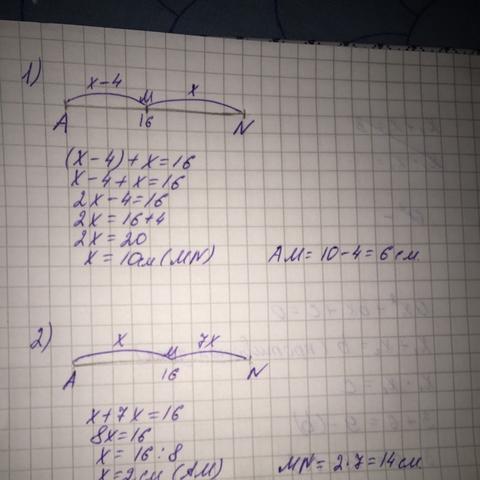 1)
x-4 x
A M N
16
(x-4)+x=16
x-4+x=16
2x-4=16
2x=16+4
2x=20
x=10см(MN) AM=10-4=6см
2)
x 7x
A M N
16
x+7x=16
8x=16
x=16:8
x=2см(AM) MN=2·7=14см